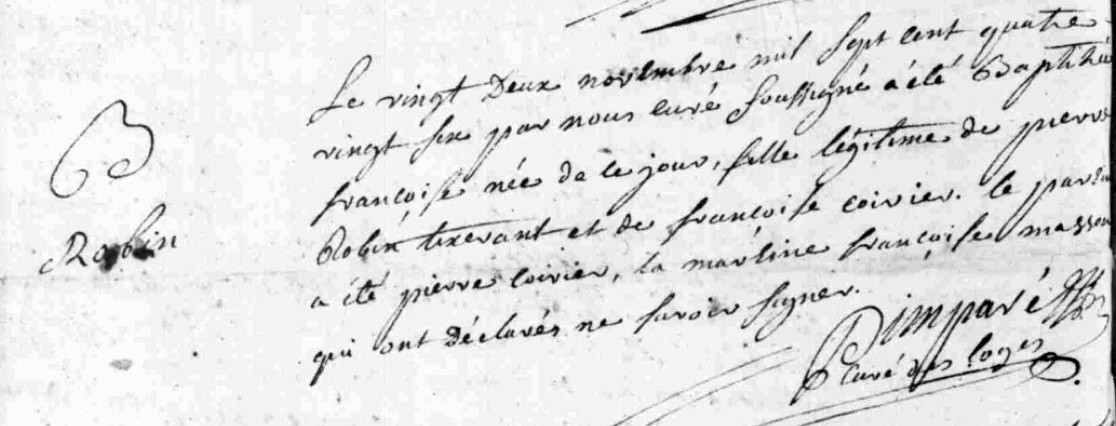 B
Robin
Le vingt Deux novembre mil sept cent quatre
vingt six par nous curé soussigné a été Baptisée
françoise née de ce jour, fille légitime de pierre
Robin tixerant et de françoise coirier. le parein
a été pierre coirier, la mareine françoise masson
qui ont déclarés ne savoir signer.
Rimparé
curé des loges